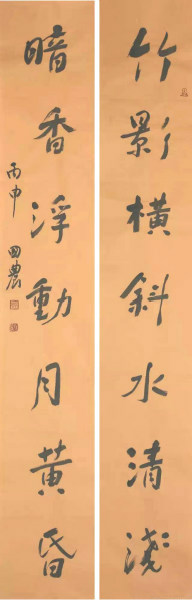 竹影橫斜水清淺
暗香浮動月黃昏
丙申 田農